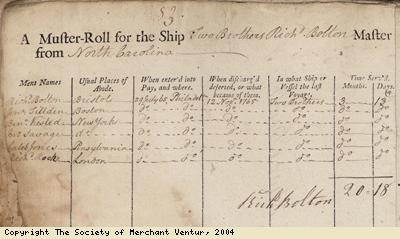 53
A Muster-Roll for the Ship Two Brothers Richd. Bolton Master
from North Carolina
Mens Names | Usual Places of Abode. | When enter'd into Pay, and where. | When discharg'd deserted, or what became of them. | In what Ship or Vessel the last Voyage. | Time Serv'd. Months. Days.
Richd. Bolton Bristol 29 July 65 Philadela. 12 Novr. 1765 Two Brothers 3 13
Tillden Boston do do do do do
New York do do do do do
Savage do do do do do do
Jones Pensylvania do do do do do
Richd. Rock London do do do do do
20 - 18
Richd. Bolton
Copyright The Society of Merchant Ventur, 2004